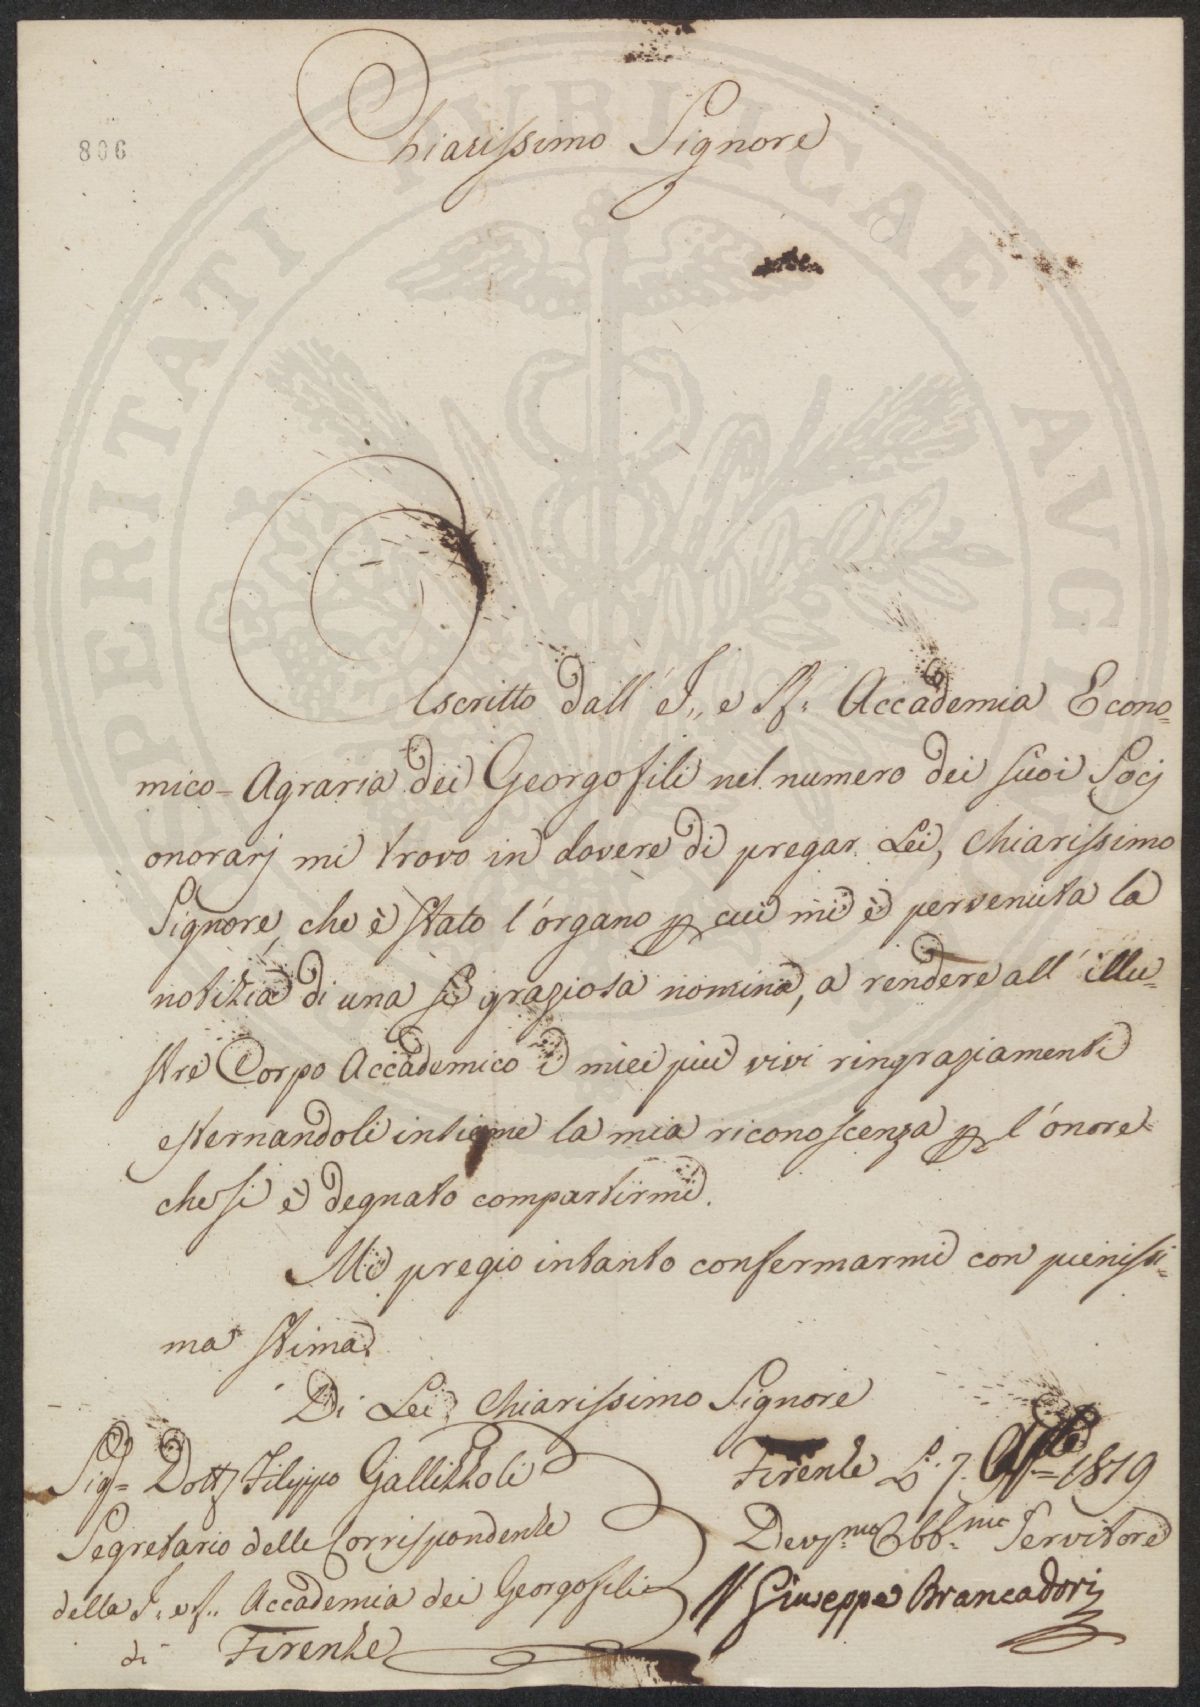 806
PROSPERITATI PUBLICAE AUGENDAE
Chiarissimo Signore
Ascritto dall' I,, e R: Accademia Econo=
mico=Agraria dei Georgofili nel numero dei suoi Socj
onorarj mi trovo in dovere di pregar Lei, Chiarissimo
Signore, che è stato l'organo p cui mi è pervenuta la
notizia di una sì graziosa nomina, a rendere all' illu=
stre Corpo Accademico i miei più vivi ringraziamenti
esternandoli insieme la mia riconoscenza p l'onore
che si è degnato compartirmi.
Mi pregio intanto confermarmi con pienissi=
ma stima
Di Lei Chiarissimo Signore
Sig= Dott Filippo Gallizzoli
Segretario delle Corrispondenze
della I. e R.. Accademia dei Georgofili
di Firenze
Firenze Li 7. 1819
Dev,mo Obb=mo Servitore
Giuseppe Brancadori